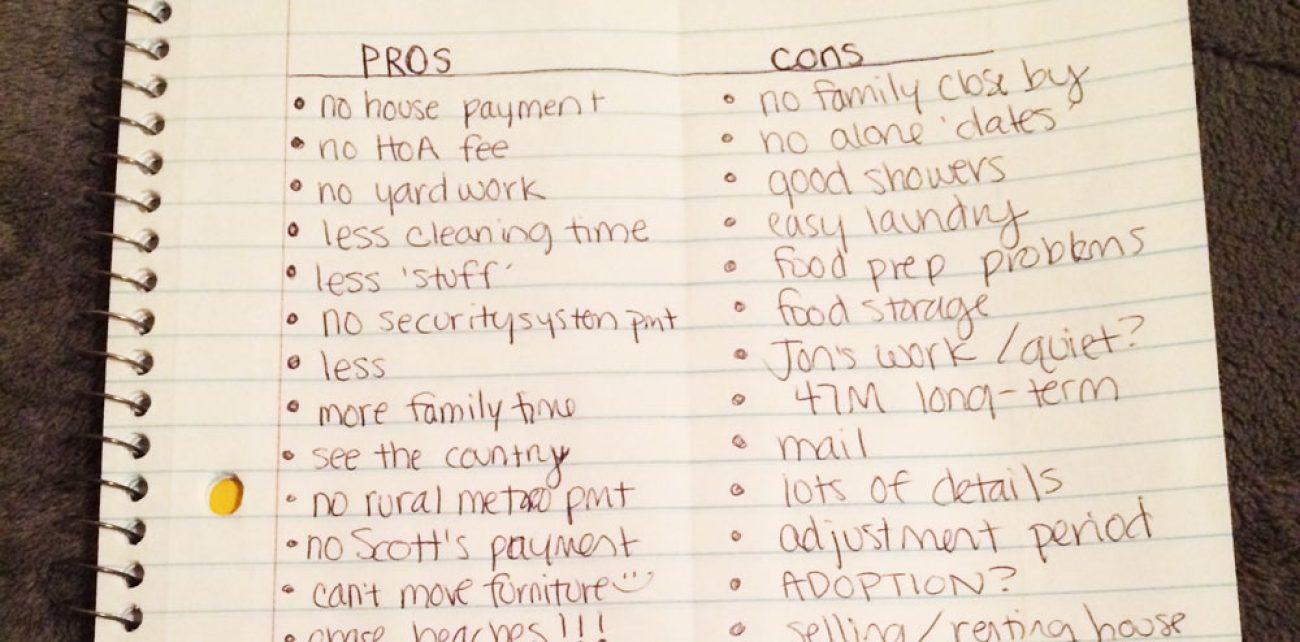 PROS
• no house payment
• no HOA fee
• no yard work
• less cleaning time
• less 'stuff'
• no security systen pmt
• less
• more family time
• see the country
• no rural metro pmt
• no Scott's payment
• can't move forniture
• beaches!!!
cons
• no family close by
• no alone 'dates'
• good showers
• easy laundry
• food prep problems
• food storage
• Jon's work / quiet?
• 47M long-term
• mail
• lots of details
• adjustment period
• ADOPTION?
• selling / renting house